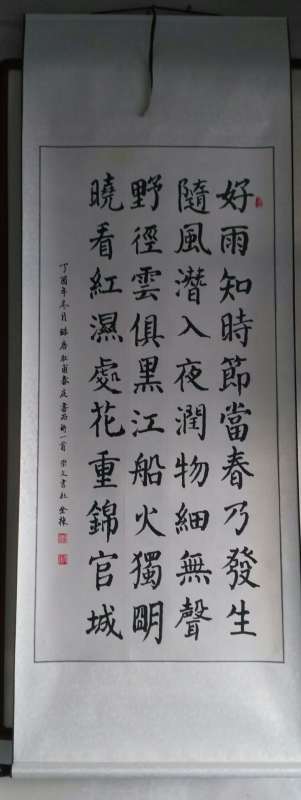 好雨知時節當春乃發生
隨風潛入夜潤物細無聲
野徑雲俱黑江船火獨明
曉看紅濕處花重錦官城
丁酉年冬月 錄唐杜甫春夜喜雨 書 金棟